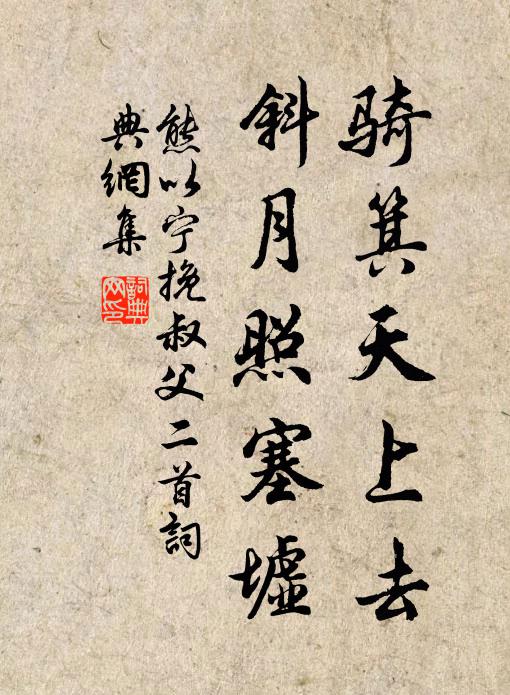 騎箕天上去
斜月照塞墟
熊以宁挽叔父二首詞
典網集
詞典
网印